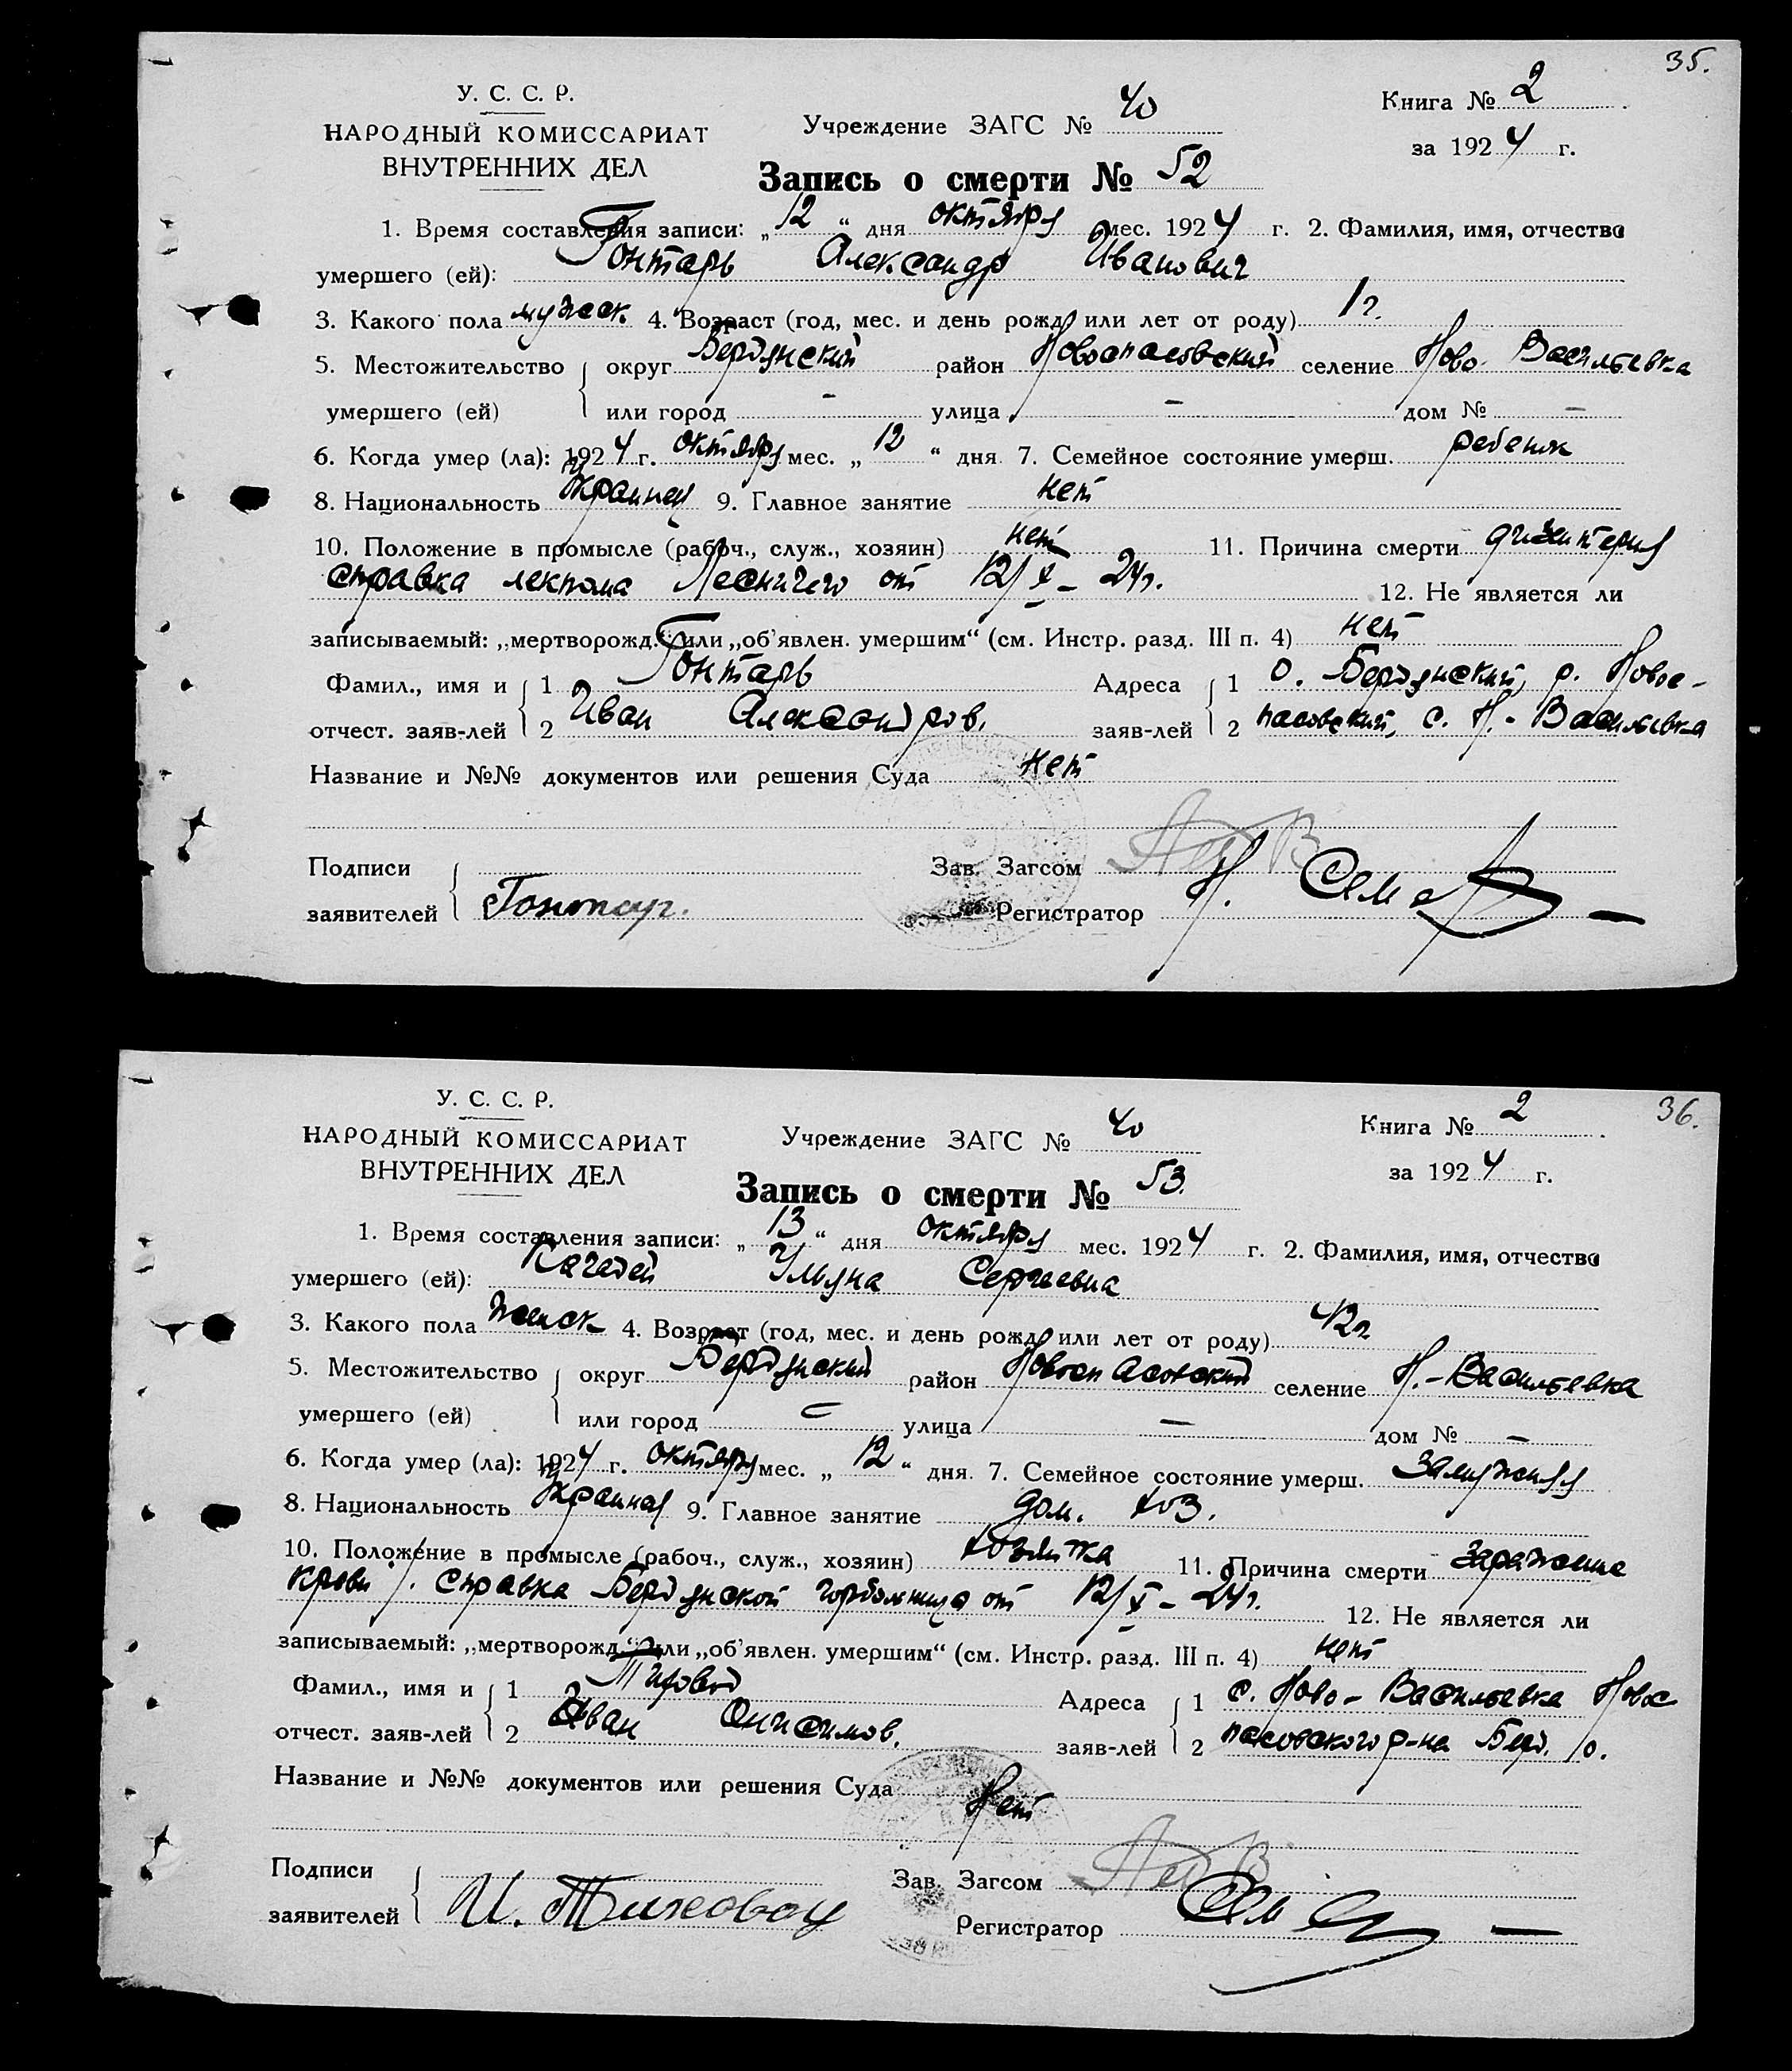 35.
У. С. С. Р.
НАРОДНЫЙ КОМИССАРИАТ
ВНУТРЕННИХ ДЕЛ
Учреждение ЗАГС № 40
Книга № 2
за 1924 г.
Запись о смерти № 52
1. Время составления записи: „12“ дня октября мес. 1924 г. 2. Фамилия, имя, отчество
умершего (ей): Гонтарь Александр Иванович
3. Какого пола мужеск. 4. Возраст (год, мес. и день рожд. или лет от роду) 1 г.
5. Местожительство округ Бердянский район Новоспасовский селение Ново-Васильевка
умершего (ей) или город - улица - дом № -
6. Когда умер (ла): 1924 г. октября мес. „12“ дня 7. Семейное состояние умерш. ребенок
8. Национальность 9. Главное занятие нет
10. Положение в промысле (рабоч., служ., хозяин) нет 11. Причина смерти дизентерия
справка лекпома Лесничего от 12/X-24г. 12. Не является ли
записываемый: „мертворожд.“ или „об’явлен. умершим“ (см. Инстр. разд. III п. 4) нет
Фамил., имя и 1 Гонтарь Адреса 1 о. Бердянский, р. Новос-
отчест. заяв-лей 2 Иван Александров. заяв-лей 2 пасовский, с. Н.-Васильевка
Название и №№ документов или решения Суда нет
Подписи Зав. Загсом
заявителей Гонтар. Регистратор
36.
У. С. С. Р.
НАРОДНЫЙ КОМИССАРИАТ
ВНУТРЕННИХ ДЕЛ
Учреждение ЗАГС № 40
Книга № 2
за 1924 г.
Запись о смерти № 53.
1. Время составления записи: „13“ дня октября мес. 1924 г. 2. Фамилия, имя, отчество
умершего (ей): Ульяна Сергеевна
3. Какого пола женск 4. Возраст (год, мес. и день рожд. или лет от роду) 42г.
5. Местожительство округ Бердянский район Новоспасовский селение Н.-Васильевка
умершего (ей) или город - улица - дом № -
6. Когда умер (ла): 1924 г. октября мес. „12“ дня. 7. Семейное состояние умерш. замужняя
8. Национальность 9. Главное занятие дом. хоз.
10. Положение в промысле (рабоч., служ., хозяин) хозяйка 11. Причина смерти заражение
крови /. справка Бердянской горбольницы от 12/X-24г. 12. Не является ли
записываемый: „мертворожд.“ или „об’явлен. умершим“ (см. Инстр. разд. III п. 4) нет
Фамил., имя и 1 Адреса 1 с. Ново-Васильевка Новос
отчест. заяв-лей 2 Иван Онисимов. заяв-лей 2 пасовского р-на Берд. о.
Название и №№ документов или решения Суда Нет
Подписи Зав. Загсом
заявителей И. Регистратор